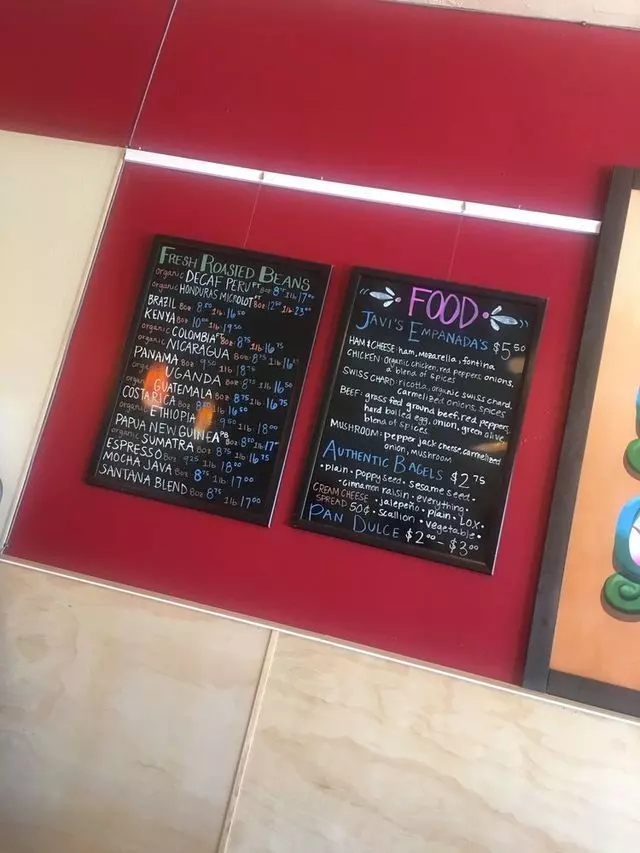 FRESH ROASTED BEANS
organic DECAF PERU FT 8oz 8⁷⁵ 1lb 17⁰⁰
organic HONDURAS MICROLOT FT 8oz 12⁵⁰ 1lb 23⁰⁰
BRAZIL 8oz 8⁵⁰ 1lb 16⁵⁰
KENYA 8oz 10⁰⁰ 1lb 19⁵⁰
organic COLOMBIA FT 8oz 8⁷⁵ 1lb 16⁷⁵
organic NICARAGUA 8oz 8⁷⁵ 1lb 16
PANAMA 8oz 9⁵⁰ 1lb 18⁷⁵
organic UGANDA 8oz 8⁷⁵ 1lb 16⁵⁰
GUATEMALA 8oz 8⁷⁵ 1lb 16⁷⁵
COSTA RICA 8oz 1lb 16⁵⁰
organic ETHIOPIA 9⁵⁰ 1lb 18⁰⁰
PAPUA NEW GUINEA PB 8oz 1lb 17
organic SUMATRA 8oz 8⁷⁵ 1lb 16⁷⁵
ESPRESSO 8oz 9²⁵ 1lb 18⁰⁰
MOCHA JAVA 8oz 8⁷⁵ 1lb 17⁰⁰
SANTANA BLEND 8oz 8⁷⁵ 1lb 17⁰⁰
FOOD
JAVI'S EMPANADA'S $5⁵⁰
HAM & CHEESE: ham, mozarella, fontina
CHICKEN: organic chicken, red peppers, onions,
a blend of spices
SWISS CHARD: ricotta, organic swiss chard,
carmelized onions, spices
BEEF: grass fed ground beef, red peppers,
hard boiled egg, onion, green olive
blend of spices
MUSHROOM: pepper jack cheese, carmelized
onion, mushroom
AUTHENTIC BAGELS $2⁷⁵
• plain • poppy seed • sesame seed •
• cinnamon raisin • everything •
CREAM CHEESE • jalepeño • plain • LOX •
SPREAD 50¢ • scallion • vegetable •
PAN DULCE $2⁰⁰ - $3⁰⁰